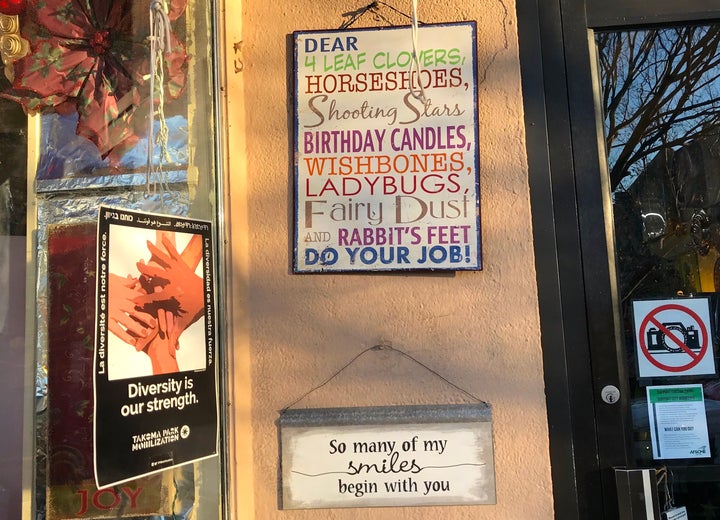 DEAR
4 LEAF CLOVERS,
HORSESHOES,
Shooting Stars
BIRTHDAY CANDLES,
WISHBONES,
LADYBUGS,
Fairy Dust
AND RABBIT'S FEET
DO YOUR JOB!
So many of my
smiles
begin with you
La diversité est notre force.
La diversidad es nuestra fuerza.
Diversity is
our strength.
TAKOMA PARK
MOBILIZATION
JOY
WHAT CAN YOU DO?
AFSCME